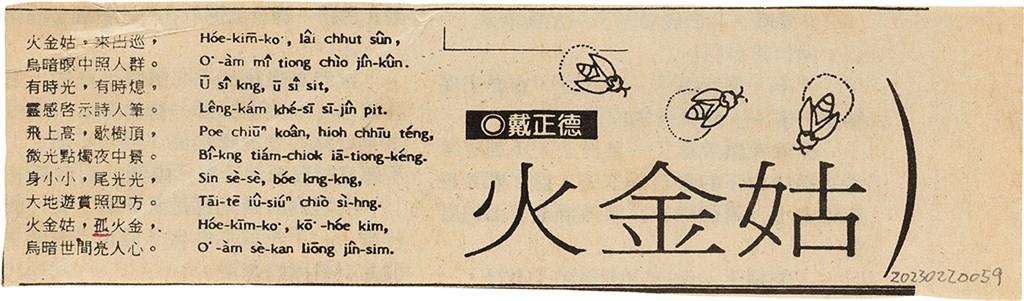 火金姑，來出巡，
烏暗暝中照人群。
有時光，有時熄，
靈感啓示詩人筆。
飛上高，歇樹頂，
微光點燭夜中景。
身小小，尾光光，
大地遊賞照四方。
火金姑，孤火金，
烏暗世間亮人心。
Hóe-kim-ko͘, lâi chhut sûn,
O͘-àm mî tiong chiò jîn-kûn.
Ū sî kng, ū sî sit,
Lêng-kám khé-sī sī-jîn pit.
Poe chiūⁿ koân, hioh chhīu téng,
Bî-kng tiám-chiok iā-tiong-kéng.
Sin sè-sè, bóe kng-kng,
Tāi-tē iû-siúⁿ chiò sì-hng.
Hóe-kīm-ko͘, kō͘-hóe kim,
O͘-àm sè-kan liōng jîn-sim.
◎戴正德
火金姑
20230220059